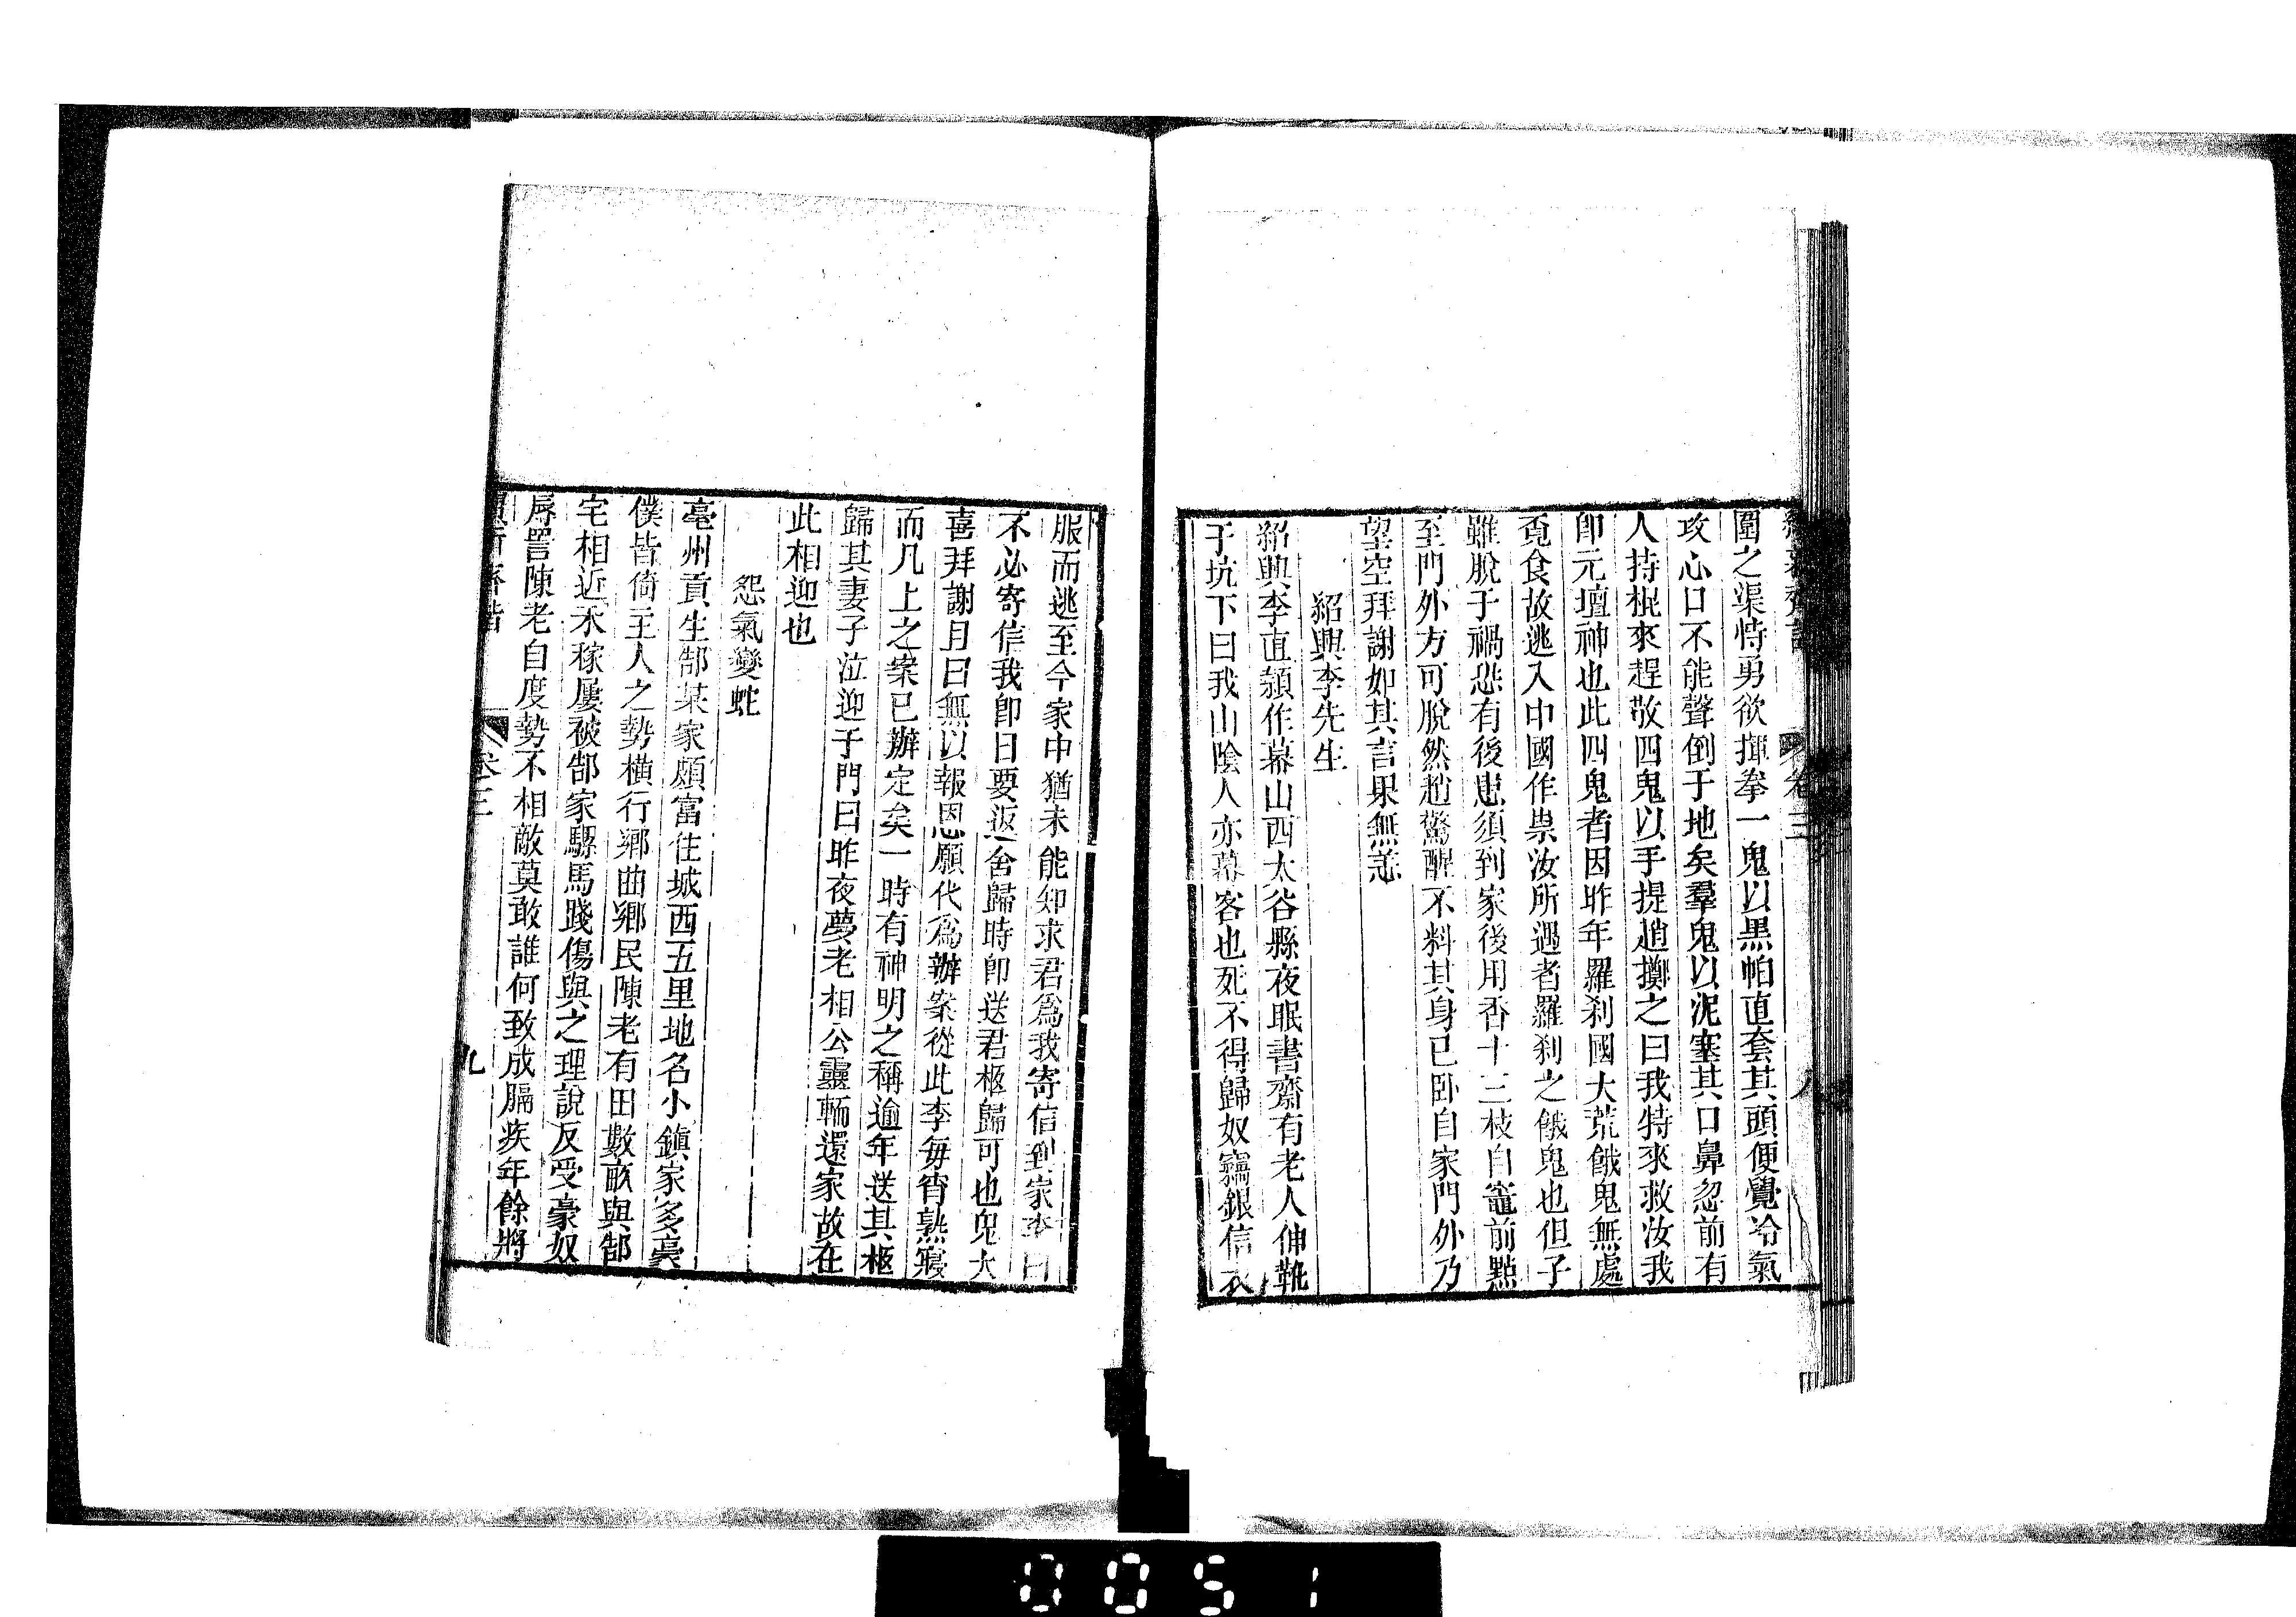 續新齊諧 卷三 八
圍之渠恃勇欲揮拳一鬼以黑帕直套其頭便覺冷氣
攻心口不能聲倒于地矣羣鬼以泥塞其口鼻忽前有
人持棍來趕敬四鬼以手提趙擲之曰我特來救汝我
卽元壇神也此四鬼者因昨年羅刹國大荒餓鬼無處
覓食故逃入中國作祟汝所遇者羅刹之餓鬼也但子
雖脫于禍恐有後患須到家後用香十三枝自竈前點
至門外方可脫然趙驚醒不料其身已卧自家門外乃
望空拜謝如其言果無恙
紹興李先生
紹興李直頴作幕山西太谷縣夜眠書齋有老人伸靴
于坑下曰我山陰人亦幕客也死不得歸奴竊銀信衣
服而逃至今家中猶未能知求君爲我寄信到家李曰
不必寄信我卽日要返舍歸時卽送君柩歸可也鬼大
喜拜謝且曰無以報恩願代爲辦案從此李每宵熟寢
而几上之案已辦定矣一時有神明之稱逾年送其柩
歸其妻子泣迎于門曰昨夜夢老相公靈輀還家故在
此相迎也
怨氣變蛇
亳州貢生郜某家頗富住城西五里地名小鎮家多豪
僕皆倚主人之勢橫行鄉曲鄉民陳老有田數畝與郜
宅相近禾稼屢被郜家騾馬踐傷與之理說反受豪奴
辱詈陳老自度勢不相敵莫敢誰何致成膈疾年餘將
卷三 九
0051